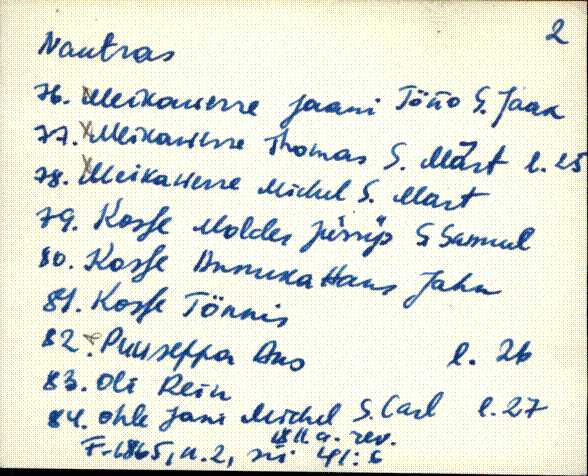 2
Nautras
76. Meikawerre Jaani Tönno S. Jaak
77. Meikawerre Thomas S. Märt l. 25
78. Meikawerre Michel S. Mart
79. Kosse Moldes Jürry S Samuel
80. Kosse Annuka Hans Jahn
81. Kosse Tönnis
82. Puuseppa Ans l. 26
83. Oli Rein
84. Ohle Jani Michel S. Carl l. 27
1811 a. rev.
F. 1865, n. 2, 41:6